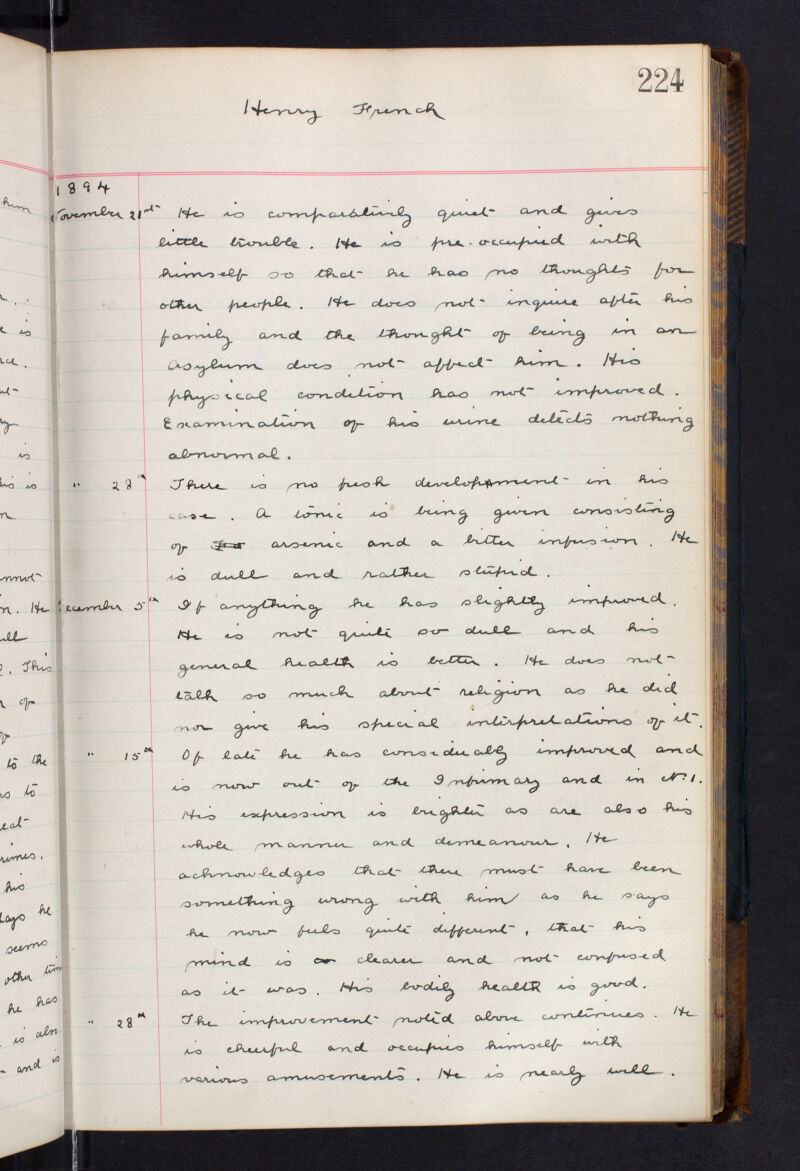 224
Henry French
1894
November 21st He is comparatively quiet and gives
little trouble. He is pre-occupied with
himself so that he has no thoughts for
other people. He does not inquire after his
family and the thought of being in an
asylum does not affect him. His
physical condition has not improved.
Examination of his urine detects nothing
abnormal.
" 28th There is no fresh development in his
case. A tonic is being given consisting
of arsenic and a bitter infusion. He
is dull and rather stupid.
December 5th If anything he has slightly improved.
He is not quite so dull and his
general health is better. He does not
talk so much about religion as he did
nor give his special interpretations of it.
" 15th Of late he has considerably improved and
is now out of the Infirmary and in No. 1.
His expression is brighter as are also his
whole manner and demeanour. He
acknowledges that there must have been
something wrong with him as he says
he now feels quite different, that his
mind is clearer and not confused
as it was. His bodily health is good.
" 28th The improvement noted above continues. He
is cheerful and occupies himself with
various amusements. He is nearly well.
him
is
is
his is
n. He
. This
of
to the
to
his
he
seems
other
he has
is
and is